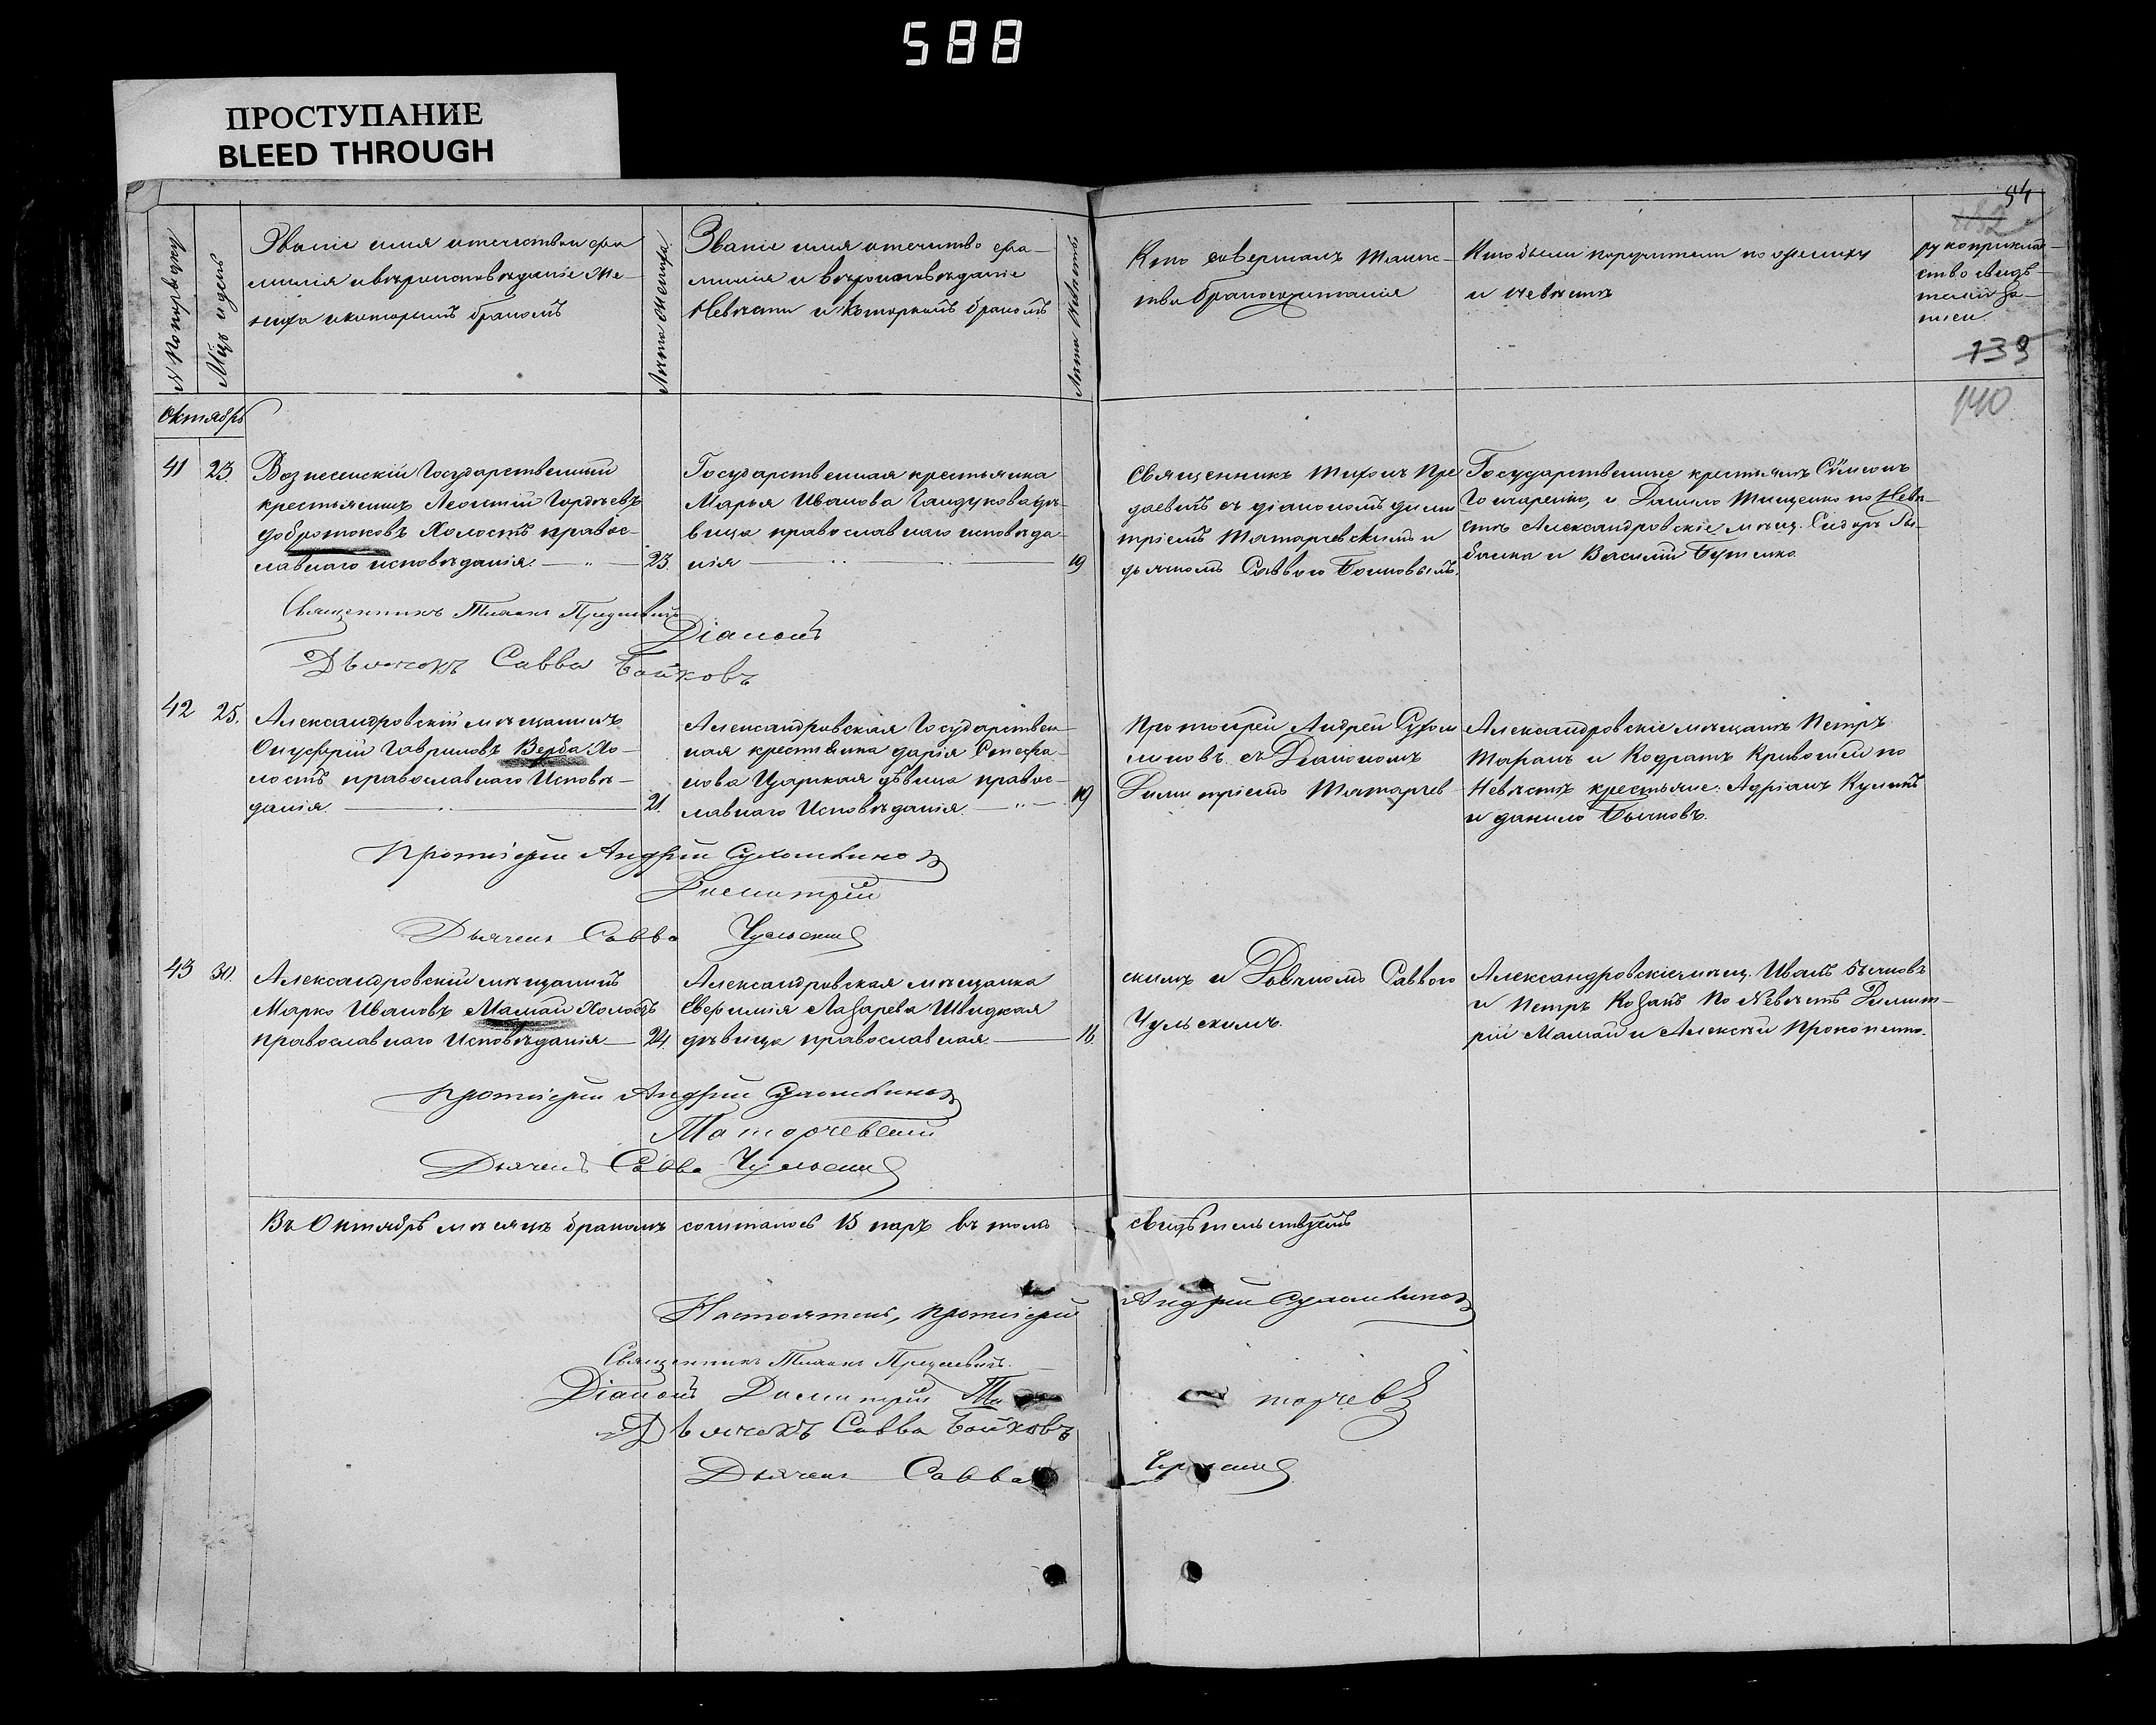 588
ПРОСТУПАНИЕ
BLEED THROUGH
54
№ по порядку
Мцъ и день
Званіе имя отечество и фа
милія и вѣроисповѣданіе Же-
ниха и которымъ бракомъ
Лѣта Жениха
Званіе имя отечество фа-
милія и вѣроисповѣданіе
Невѣсты и которымъ бракомъ
Лѣта Невѣсты
Кто совершалъ таинс-
тво бракосочитанія
Кто были поручители по жениху
и невѣстѣ
рукоприклад-
ство свидѣ-
телей за-
писи
139
140
Октябрь
41 23. Вознесенскій Государственный
крестьянинъ Леонтій Гордѣевъ
добротоковъ Холостъ правос-
лавнаго исповѣданія. 23.
Государственная крестьянка
Марья Иванова Гандукова дѣ-
вица православнаго исповѣда-
нія 19
Священникъ Тихонъ Пре
даевичъ съ діакономъ дими
тріемъ Таторчевскимъ и
дьячкомъ Саввою Бойковымъ.
Государственные крестьянъ Сѵмеонъ
Гончаренко, и Данило Тищенко по Невѣ-
стѣ Александровскіе мѣщ. Сидоръ Ры-
балка и Василій Бутенко.
Священникъ Тихонъ Предаевичъ
Діаконъ
Дьячекъ Савва Бойковъ
42 25. Александровскій мѣщанинъ
Онуфрій Гавриловъ Верба Хо-
лостъ православнаго Исповѣ-
данія. 21.
Александровская Государствен-
ная крестьянка дарія Стефа-
нова Царикая дѣвица правос-
лавнаго Исповѣданія. 19
Протоіерей Андрей Сухом
линовъ съ Діакономъ
Димитріемъ Таторчев
Александровскіе мѣщанъ Петръ
Таранъ и Кодратъ Кривошей по
Невѣстѣ крестьяне: Адріанъ Куликъ
и данило Бычковъ.
Протоіерей Андрей Сухомлиновъ
Димитрій
Дьячекъ Савва Чульскій
43 30. Александровскій мѣщанинъ
Марко Ивановъ Мамай Холостъ
православнаго Исповѣданія 24.
Александровская мѣщанка
Евфимія Лазарева Швидкая
дѣвица православная. 18.
скимъ и Дьячкомъ Саввою
Чульскимъ.
Александровскіе мѣщ. Иванъ Бычковъ
и Петръ Козакъ По Невѣстѣ Димит-
рій Мамай и Алексѣй Прокопенко.
Протоіерей Андрей Сухомлиновъ
Таторчевскій
Дьячекъ Савва Чульскій
Въ Октябрѣ мѣсяцѣ бракомъ сочиталось 15 паръ въ томъ свидѣтельствуемъ
Настоятель, Протоіерей Андрей Сухомлиновъ
Священникъ Тихонъ Предаевичъ.
Діаконъ Димитрій Та торчев
Дьячекъ Савва Бойковъ
Дьячекъ Савва Чульскій